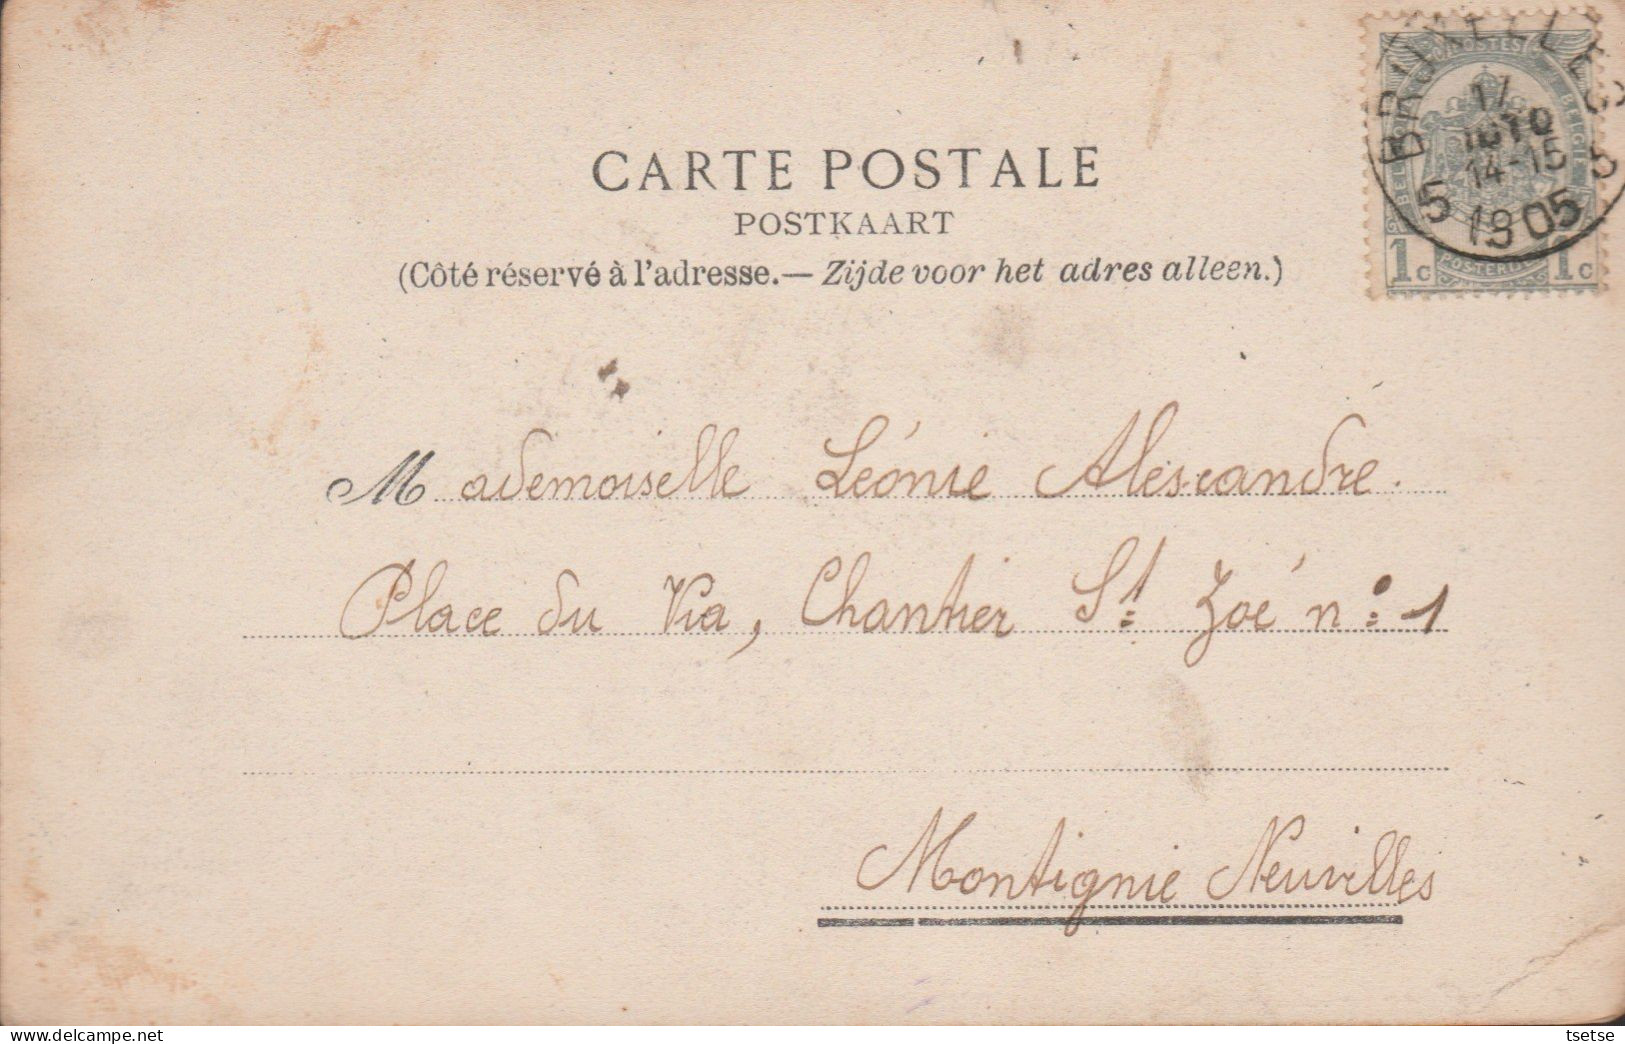 BRUXELLES
17
OCTO
14-15
5 1905 5
POSTES
BELGIE
1c 1c
CARTE POSTALE
POSTKAART
(Côté réservé à l'adresse.— Zijde voor het adres alleen.)
Mademoiselle Léonie Alexandre.
Place du Via, Chantier St. Zoé n° 1
Montignie Neuvilles
tsetse